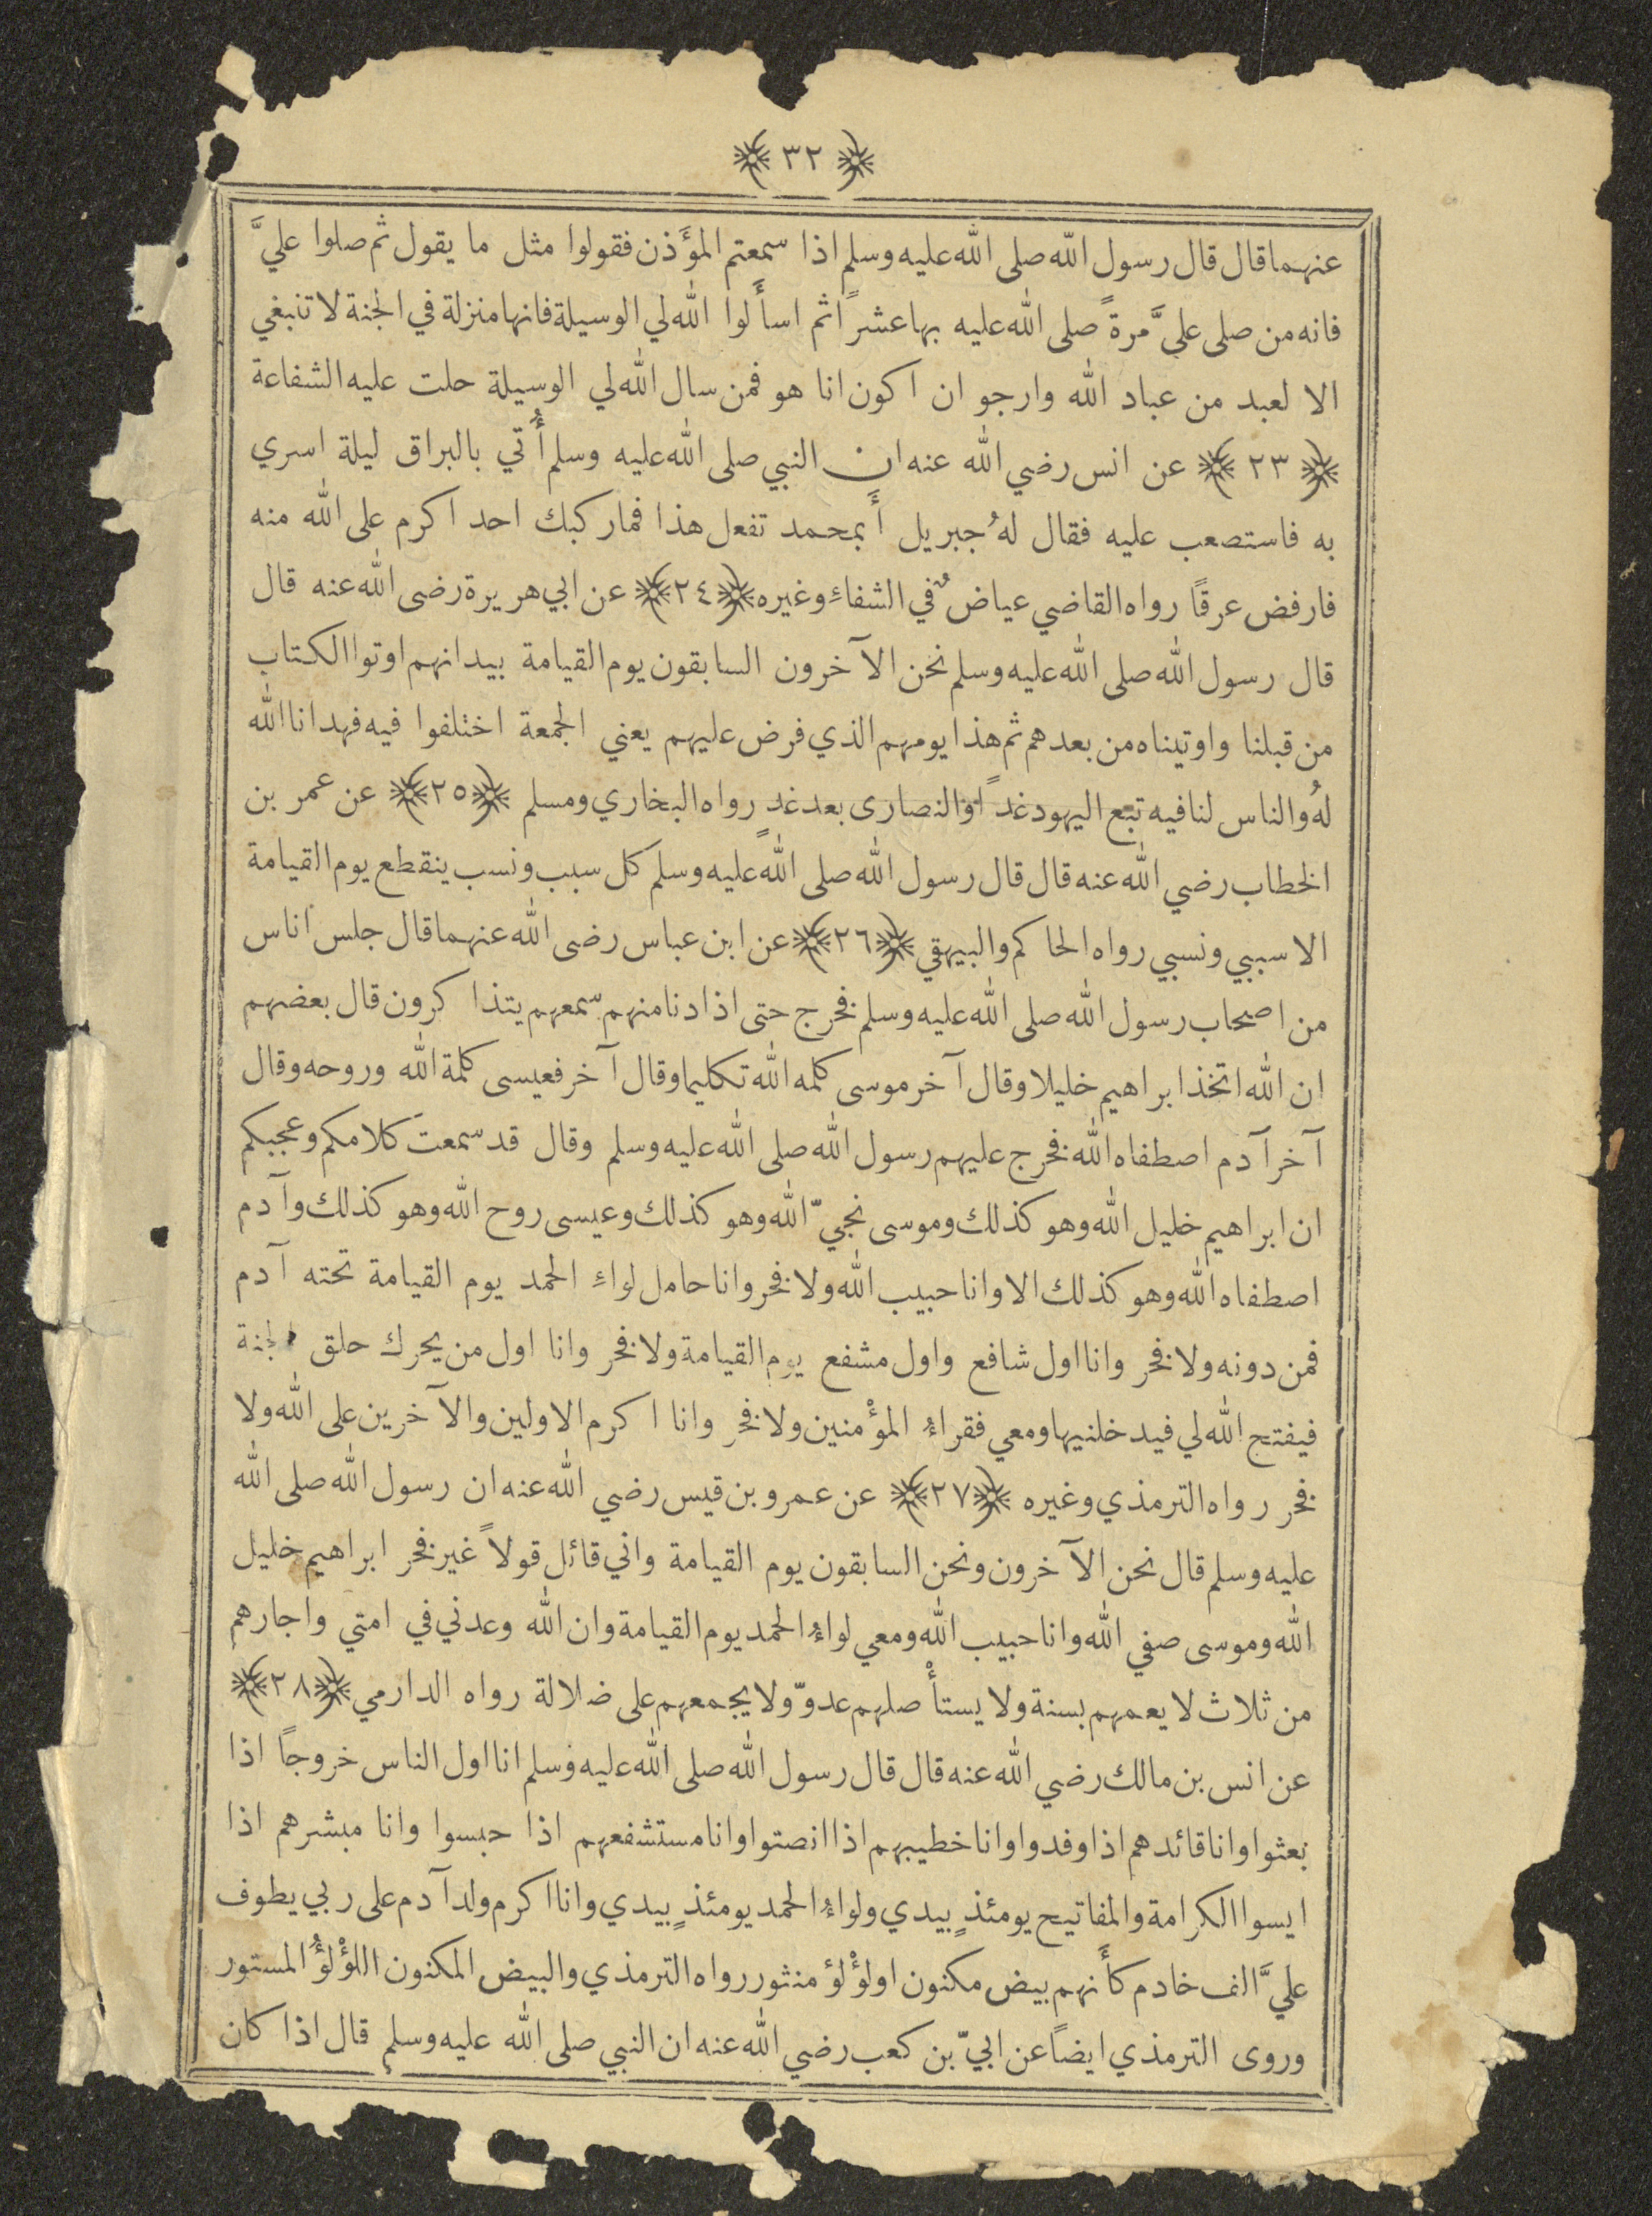 ﴿ ٣٢ ﴾
عنهما قال قال رسول الله صلى الله عليه وسلم اذا سمعتم المؤَذن فقولوا مثل ما يقول ثم صلوا عليَّ
فانه من صلى عليَّ مرةً صلى الله عليه بها عشرًا ثم اسأَلوا الله لي الوسيلة فانها منزلة في الجنة لا تنبغي
الا لعبد من عباد الله وارجو ان اكون انا هو فمن سال الله لي الوسيلة حلت عليه الشفاعة
﴿ ٢٣ ﴾ عن انس رضي الله عنه ان النبي صلى الله عليه وسلم أُتي بالبراق ليلة اسري
به فاستصعب عليه فقال لهُ جبريل أَبمحمد تفعل هذا فما ركبك احد اكرم على الله منه
فارفض عرقًا رواه القاضي عياضٌ في الشفاءِ وغيره ﴿٢٤﴾ عن ابي هريرة رضى الله عنه قال
قال رسول الله صلى الله عليه وسلم نحن الآخرون السابقون يوم القيامة بيد انهم اوتوا الكتاب
من قبلنا واوتيناه من بعدهم ثم هذا يومهم الذي فرض عليهم يعني الجمعة اختلفوا فيه فهدانا الله
لهُ والناس لنا فيه تبع اليهود غدًا والنصارى بعد غدٍ رواه البخاري ومسلم ﴿٢٥﴾ عن عمر بن
الخطاب رضي الله عنه قال قال رسول الله صلى الله عليه وسلم كل سبب ونسب ينقطع يوم القيامة
الا سببي ونسبي رواه الحاكم والبيهقي ﴿٢٦﴾ عن ابن عباس رضى الله عنهما قال جلس اناس
من اصحاب رسول الله صلى الله عليه وسلم فخرج حتى اذا دنا منهم سمعهم يتذاكرون قال بعضهم
ان الله اتخذ ابراهيم خليلا وقال آخر موسى كلمه الله تكليما وقال آخر فعيسى كلمة الله وروحه وقال
آخر آدم اصطفاه الله فخرج عليهم رسول الله صلى الله عليه وسلم وقال قد سمعت كلامكم وعجبكم
ان ابراهيم خليل الله وهو كذلك وموسى نجيّ الله وهو كذلك وعيسى روح الله وهو كذلك وآدم
اصطفاه الله وهو كذلك الا وانا حبيب الله ولا فخر وانا حامل لواءِ الحمد يوم القيامة تحته آدم
فمن دونه ولا فخر وانا اول شافع واول مشفع يوم القيامة ولا فخر وانا اول من يحرك حلق الجنة
فيفتح الله لي فيدخلنيها ومعي فقراءُ المؤْمنين ولا فخر وانا اكرم الاولين والآخرين على الله ولا
فخر رواه الترمذي وغيره ﴿٢٧﴾ عن عمرو بن قيس رضي الله عنه ان رسول الله صلى الله
عليه وسلم قال نحن الآخرون ونحن السابقون يوم القيامة واني قائل قولاً غير فخر ابراهيم خليل
الله وموسى صفي الله وانا حبيب الله ومعي لواءُ الحمد يوم القيامة وان الله وعدني في امتي واجارهم
من ثلاث لا يعمهم بسنة ولا يستأْصلهم عدوّ ولا يجمعهم على ضلالة رواه الدارمي ﴿٢٨﴾
عن انس بن مالك رضي الله عنه قال قال رسول الله صلى الله عليه وسلم انا اول الناس خروجًا اذا
بعثوا وانا قائدهم اذا وفدوا وانا خطيبهم اذا انصتوا وانا مستشفعهم اذا حبسوا وانا مبشرهم اذا
ايسوا الكرامة والمفاتيح يومئذٍ بيدي ولواءُ الحمد يومئذٍ بيدي وانا اكرم ولد آدم على ربي يطوف
عليَّ الف خادم كأَنهم بيض مكنون او لؤْلؤ منثور رواه الترمذي والبيض المكنون اللؤْلؤُ المستور
وروى الترمذي ايضًا عن ابيّ بن كعب رضي الله عنه ان النبي صلى الله عليه وسلم قال اذا كان